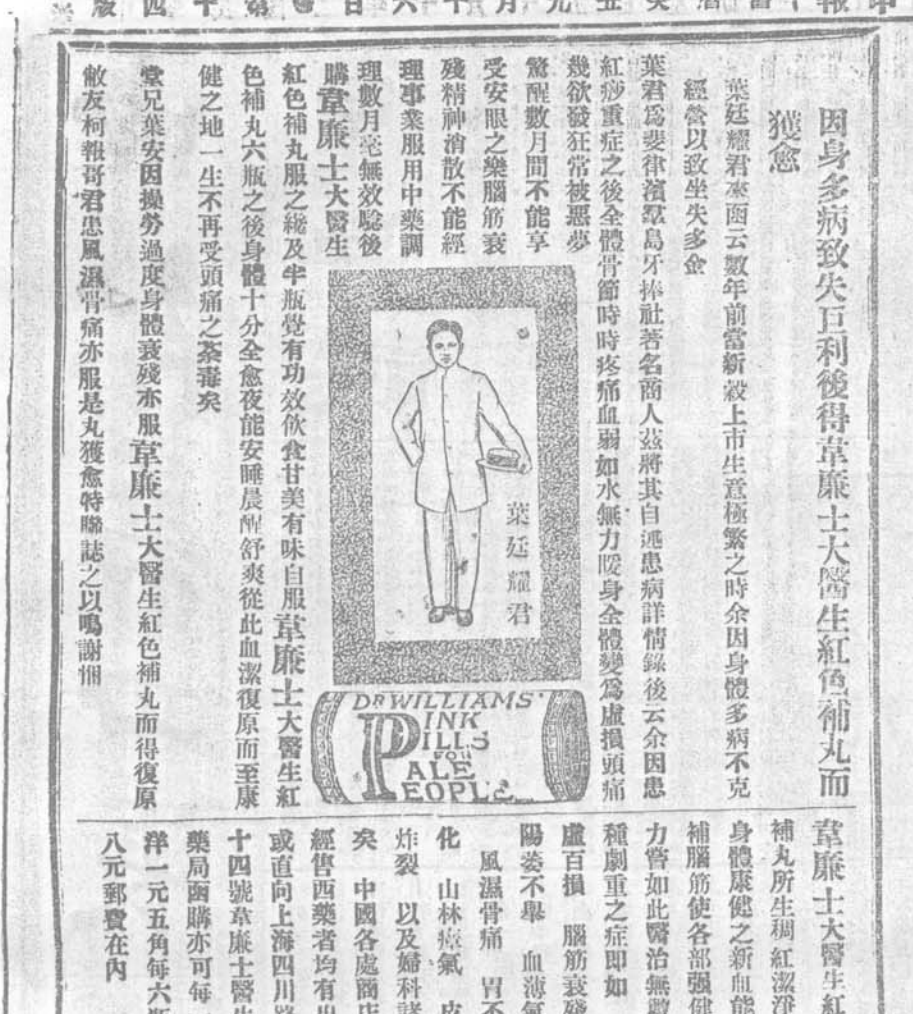 癸丑元月十六日
第十四版
因身多病致失巨利後得韋廉士大醫生紅色補丸而
獲愈
葉廷耀君來函云數年前當新穀上市生意極繁之時余因身體多病不克
經營以致坐失多金
葉君爲斐律濱羣島牙捧社著名商人茲將其自述患病詳情錄後云余因患
紅痧重症之後全體骨節時時疼痛血弱如水無力暖身全體變爲虛損頭痛
幾欲發狂常被惡夢
驚醒數月間不能享
受安眼之樂腦筋衰
殘精神消散不能經
理事業服用中藥調
理數月毫無效驗後
購韋廉士大醫生
紅色補丸服之纔及半瓶覺有功效飲食甘美有味自服韋廉士大醫生紅
色補丸六瓶之後身體十分全愈夜能安睡晨醒舒爽從此血潔復原而至康
健之地一生不再受頭痛之荼毒矣
堂兄葉安因操勞過度身體衰殘亦服韋廉士大醫生紅色補丸而得復原
敝友柯報哥君患風濕骨痛亦服是丸獲愈特聯誌之以鳴謝悃
葉廷耀君
DR WILLIAMS'
PINK
PILLS
FOR
PALE
PEOPLE
韋廉士大醫生紅
補丸所生稠紅潔淨
身體康健之新血能
補腦筋使各部强健
力管如此醫治無數
種劇重之症即如
虛百損 腦筋衰殘
陽萎不舉 血薄氣
風濕骨痛 胃不
化 山林瘴氣 皮
炸裂 以及婦科諸
矣 中國各處商店
經售西藥者均有出
或直向上海四川路
十四號韋廉士醫生
藥局函購亦可每
洋一元五角每六瓶
八元郵費在內